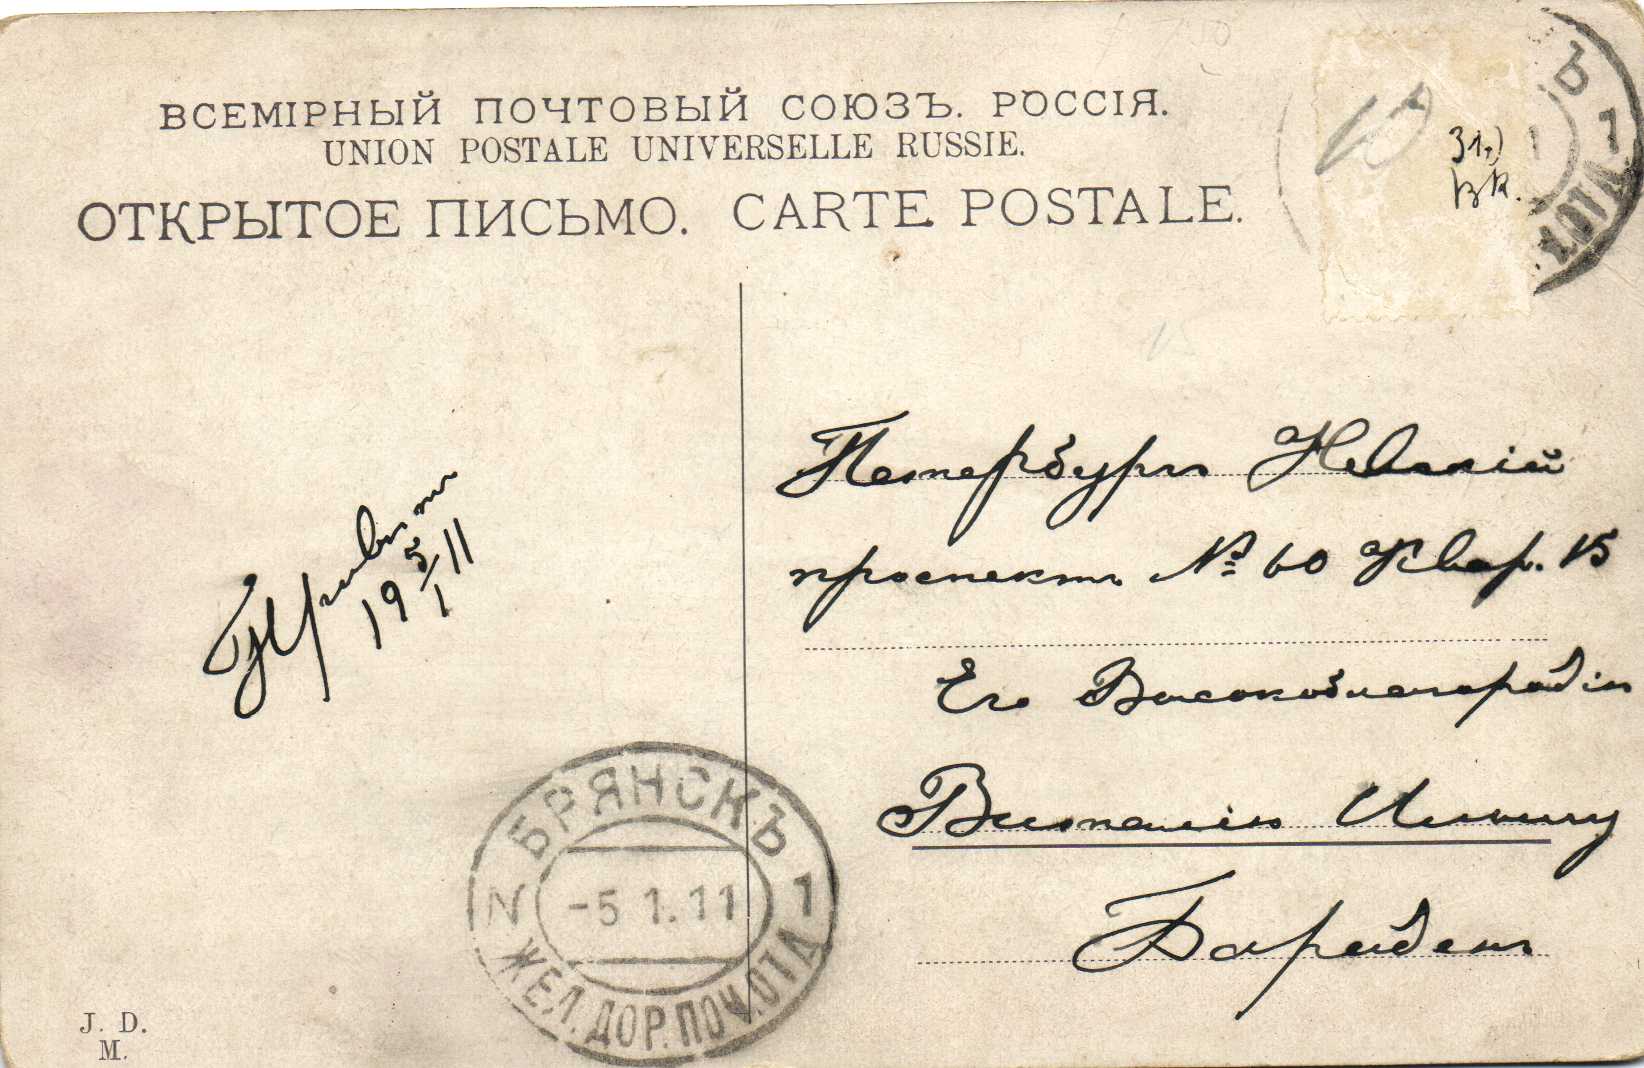 ВСЕМІРНЫЙ ПОЧТОВЫЙ СОЮЗЪ. РОССІЯ.
UNION POSTALE UNIVERSELLE RUSSIE.
ОТКРЫТОЕ ПИСЬМО. CARTE POSTALE.
31,)
вк.
Ъ 1
Петербургъ Невскій
проспектъ № 60 Квар. 15
Его Высокоблагородію
Виталію Ильичу
Привѣтъ
19 5/1 11
БРЯНСКЪ
N -5 1.11 1
ЖЕЛ. ДОР. ПОЧ. ОТД
J. D.
M.